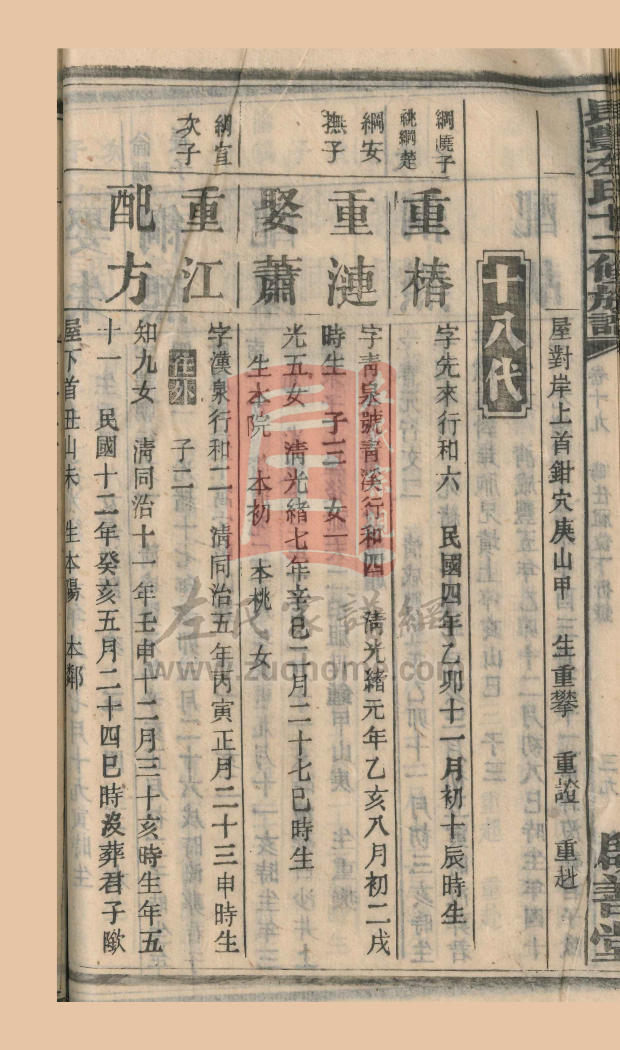 長豐左氏十二修族譜
卷十九
三九
屋對岸上首鉗穴庚山甲 生重攀 重證 重赳
十八代
綱曉子
祧綱楚
重椿
字先來行和六 民國四年乙卯十一月初十辰時生
綱安
撫子
重漣
字青泉號青溪行和四 清光緒元年乙亥八月初二戌
時生 子三 女一
娶蕭
光五女 清光緒七年辛巳二月二十七巳時生
生本院 本初 本桃 女
綱宜
次子
重江
字漢泉行和二 清同治五年丙寅正月二十三申時生
往外 子二
配方
知九女 清同治十一年壬申十二月三十亥時生年五
十一 民國十二年癸亥五月二十四巳時沒葬君子歐
屋下首丑山未 生本陽 本鄰
左氏家譜網
www.zuonome.com